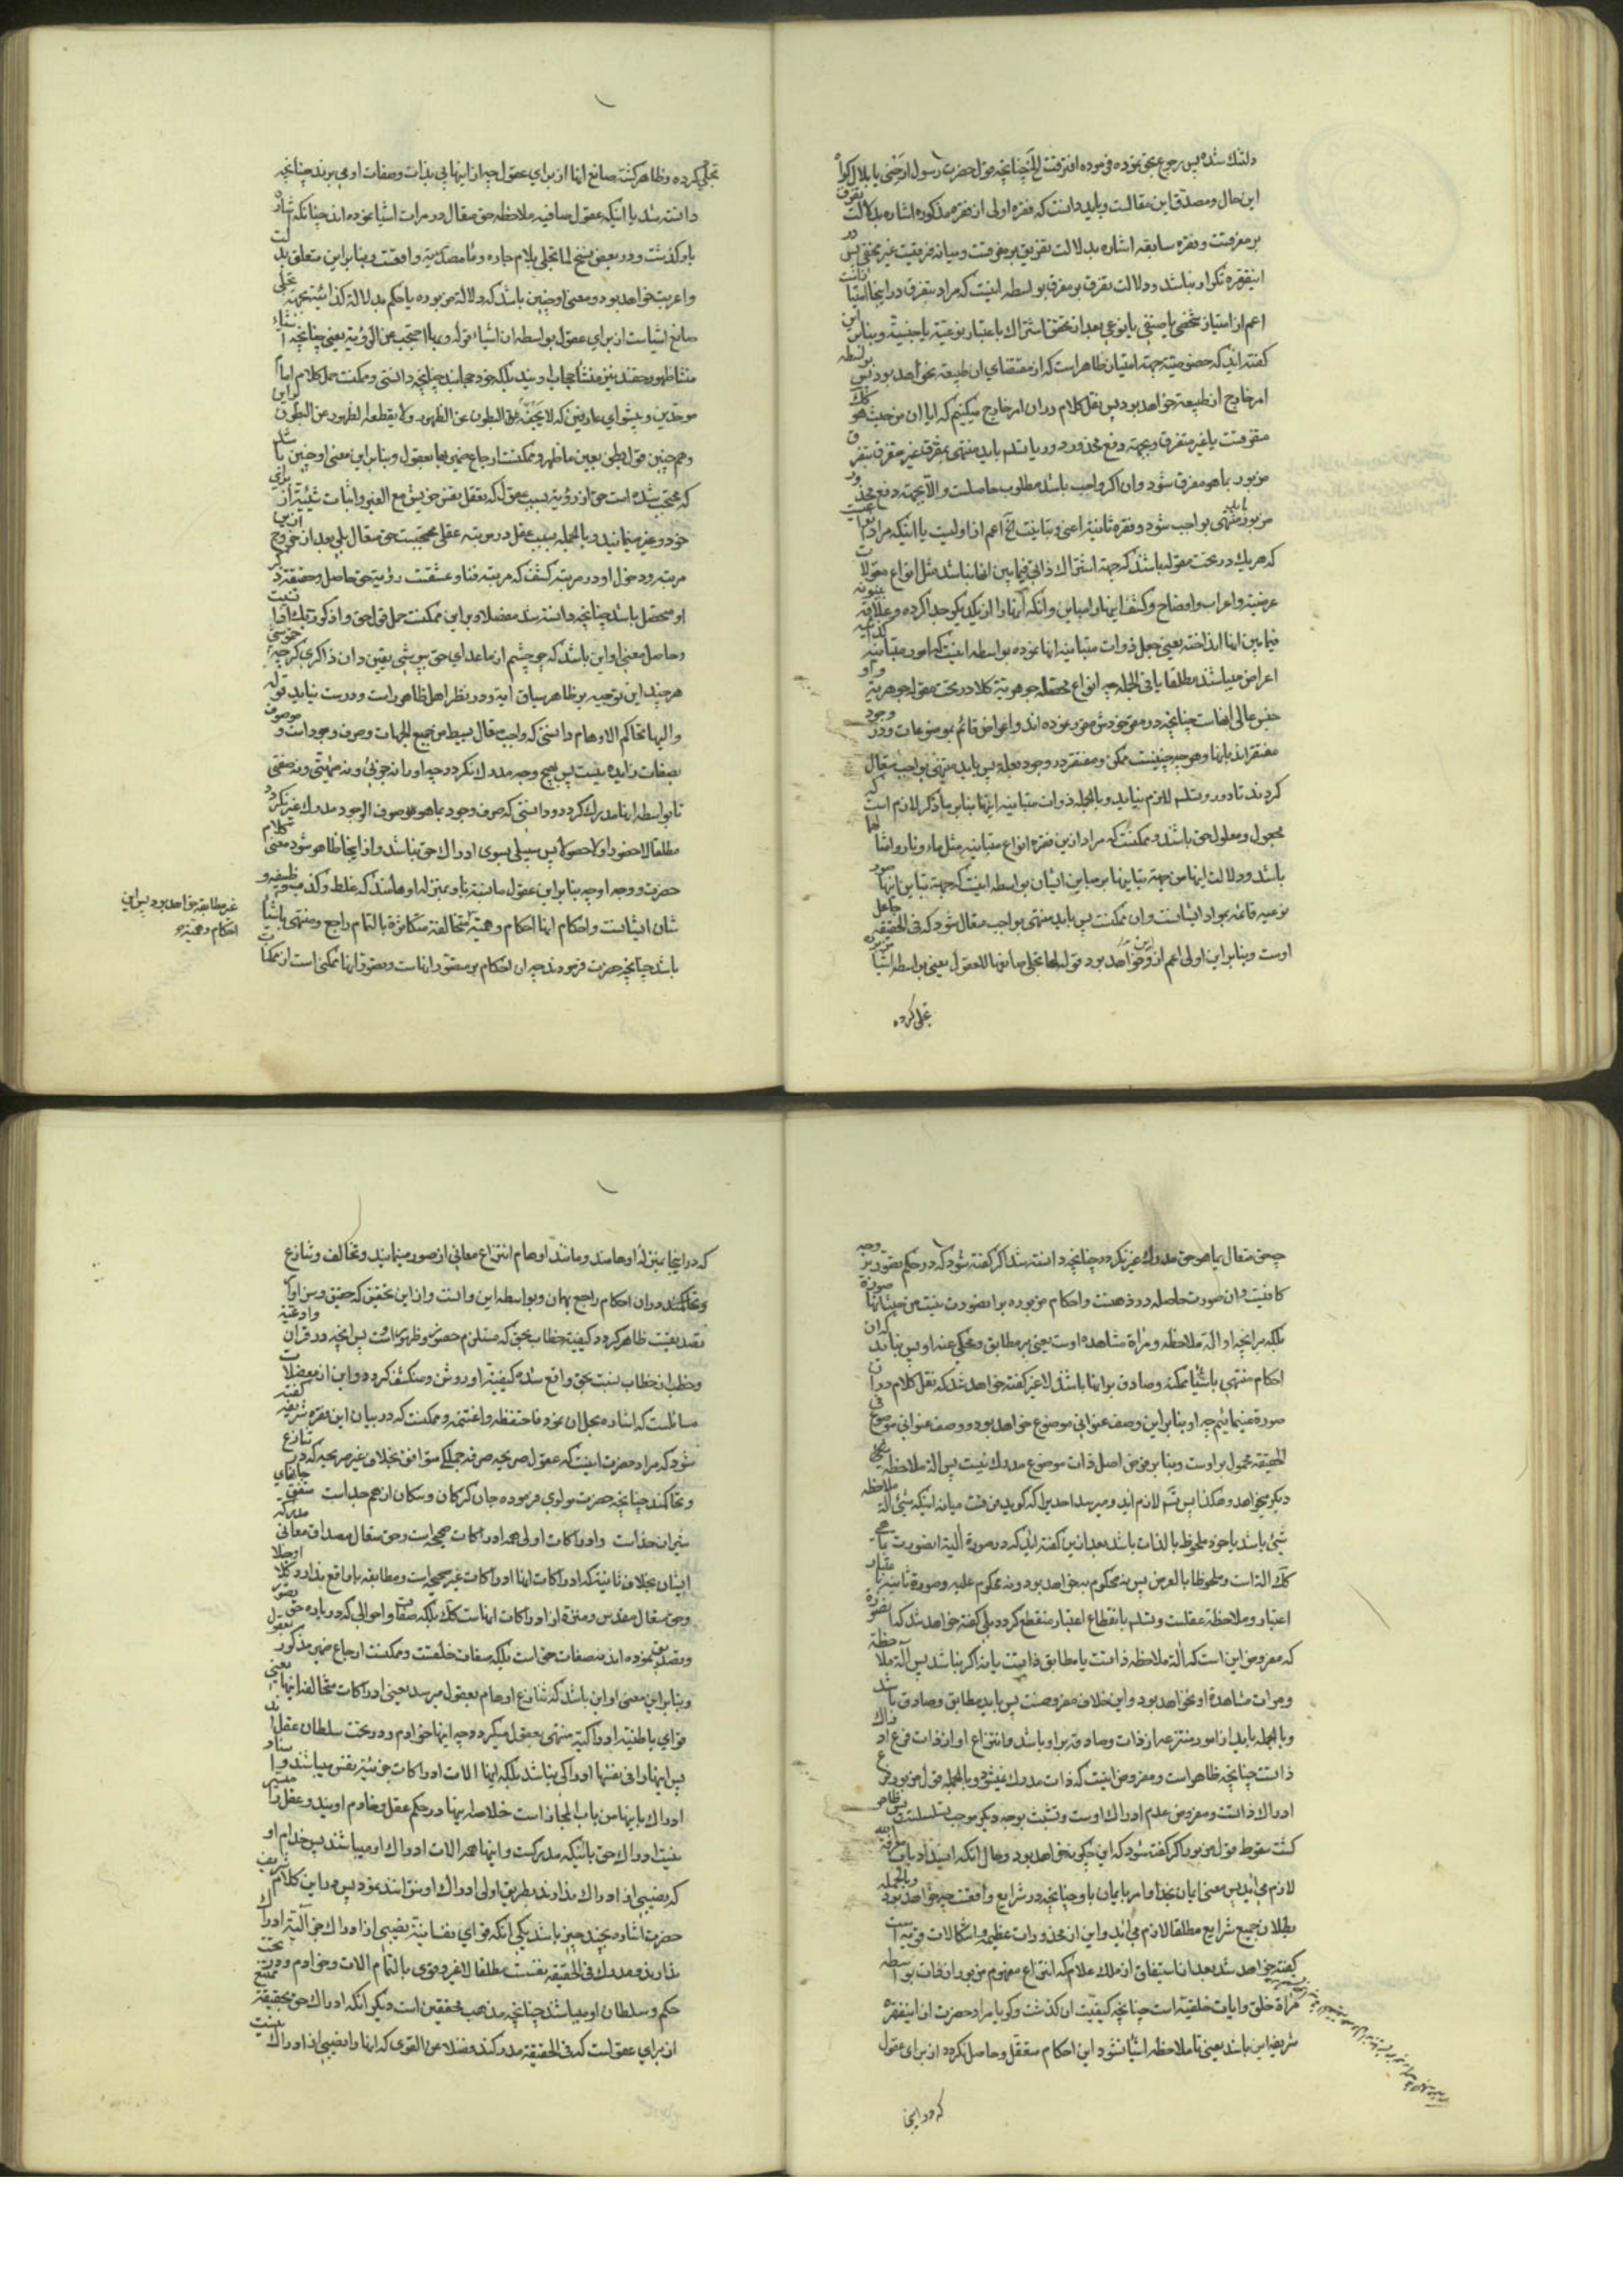 دلتنك شده پس رجوع بحق نموده فرموده افترقت الخ چنانچه قول حضرت رسول ارحنى يا بلال كواه
اين حال ومصدق اين مقالست وبايد دانست كه فقره اولى از فقره مذكوره اشاره بدلالت تفرق
بر مفرقست وفقره سابقه اشاره بدلالت تفريق بر مفرقست وميانه فرقيست غير مخفى پس در
اينفقره تكرار نباشد ودلالت تفرق بر مفرق بواسطه اينست كه مراد بتفرق در اينجا امتياز است
اعم از امتياز شخصى يا صنفى يا نوعى بعد از تحقق اشتراك باعتبار نوعية يا جنسية وبنابر اين
كفته اند كه خصوصيته جهة امتيازى ظاهر است كه از مقتضاى ان طبيعة نخواهد بود پس بواسطه
امر خارج از طبيعة خواهد بود پس نقل كلام در ان امر خارج ميكنيم كه ايا ان من حيث هو كك
متفرقست يا غير متفرق وبجهة دفع محذور دور يا تسلسل بايد منتهى بمفرق غير متفرق بتفرق
مزبور بما هو مفرق شود وان اكر واجب باشد مطلوب حاصلست والا بجهة دفع محذور
مزبور بايد منتهى بواجب شود وفقره ثانيه اعنى وتباينت الخ اعم از اوليست يا اينكه مراد
كه هر يك در تحت مقوله باشند كه جهة اشتراك ذاتى فيما بين انها نباشد مثل انواع مقولات
عرضيه واعراب وافصاح وكشف اينها از مباين وانكه انها را از يكديكر جدا كرده وعلاقه بينونه
فيما بين انها انداخته يعنى جعل ذوات متباينه انها نموده بواسطه اينست كه امور متباينه كذائيه
اعراض ميباشند مطلقا يا فى الجمله چه انواع محصله جوهرية كلا در تحت مقوله جوهريه واو
جنس عالى انهاست چنانچه در مقر خودش مقرر نموده اند واعراض قائم بموضوعات ودر وجود
مفتقر اند بانها وهر چه چنينست ممكن ومفتقر در وجود بعله پس بايد منتهى بواجب متعال
كردند تا دور وتسلسل لازم نيايد وبالجمله ذوات متباينه اينها بنابر ما ذكر لازم است كه
مجعول ومعلول حق باشند وممكنست كه مراد از اين فقره انواع متباينه مثل ماء ونار وامثالها
باشد ودلالت اينها من جهة تباينها بر مباين ايشان بواسطه اينست كه جهة تباين اينها صور
نوعيه قائمه بمواد ايشانست وان ممكنست پس بايد منتهى بواجب متعال شود كه فى الحقيقه جاعل
اوست وبنابر اين اولى اعم از اين خواهد بود قوله لما تجلى صانعها للعقول يعنى بواسطه اشياء مزبوره
تجلى كرده
تجلى كرده وظاهر كشت صانع انها از براى عقول چه از اينها پى بذات وصفات او مى برند چنانچه
دانسته شد يا اينكه عقول صافيه ملاحظه حق متعال در مرات اشيا نموده اند چنانكه اشاره
باو كذشت ودر بعض نسخ لما تجلى بلام جاره وما مصدريه واقعست وبنابراين متعلق بدلت
واعربت خواهد بود ومعنى او چنين باشد كه دلالة مزبوره يا حكم بدلالة كذائيه بجهة تجلى
صانع اشيا است از براى عقول بواسطه ان اشياء قوله وبها احتجب عن الرؤية يعنى چنانچه اشياء
منشا ظهور حقند نيز منشا حجاب اويند بلكه خود حجابند چنانچه دانستى وممكنست حمل كلام امام
موحدين وپيشواى عارفين كه لا يجنه البطون عن الظهور ولا يقطعه الظهور عن البطون براين
وهم چنين قول بطن بعين ما ظهر وممكنست ارجاع ضمير بها بعقول وبنابر اين معنى او چنين باشد
كه محتجب شده است حق از رؤية بسبب عقول كه تعقل نفس خويش مع الغير واثبات شيئية از براى
خود وغير مينمايند وبالجمله بسبب عقل در مرتبه عقلى محتجبست حق متعال بلى بعد از خروج از اين
مرتبه ودخول او در مرتبه كشف كه مرتبه فنا وعشقست رؤية حق حاصل وحقيقة ذكر
او متحصل باشد چنانچه دانسته شد مفصلا وبراين ممكنست حمل قول حق واذكر ربك اذا نسيت
وحاصل معنى او اين باشد كه چو چشم از ماعداى حق بپوشى يقين دان ذاكرى كر چه خموشى
هر چند اين توجيه بر ظاهر سياق ايه ودر نظر اهل ظاهر راست ودرست نيايد قوله
واليها تحاكم الاوهام دانستى كه واجب متعال بسيط من جميع الجهات وصرف وجود است وموصوف
بصفات زايده نيست پس بهيچ وجه مدرك نكردد چه او را نه جزئى ونه ماهيتى ونه صفتى
تا بواسطه انها مدرك كردد ودانستى كه صرف وجود بما هو صرف الوجود مدرك غير نكردد
مطلقا لا حضورا ولا حصولا پس سبيلى بسوى ادراك حق نباشد واز اينجا ظاهر شود معنى كلام
حضرت ووجه او چه بنابر اين عقول صافيه نيز بمنزله اوهامند كه غلط وكذب وظيفه
شان ايشانست واحكام انها احكام وهمية متخالفه متكاثره بالتمام راجع ومنتهى باشيا
باشد چنانچه حضرت فرمودند چه ان احكام بر متصور انهاست ومتصور انها ممكنى است از ممكنات
غير مطابقه خواهد بود پس اين
احكام وهميه
چه حق متعال بما هو حق مدرك غير نكردد چنانچه دانسته شد اكر كفته شود كه در حكم تصور بوجه
كافيست وان صورت حاصله در ذهنست واحكام مزبوره بر انصورت نيست من حيث انها صورة
بلكه بر انچه او الة ملاحظه ومراة مشاهده اوست يعنى بر مطابق ومحكى عنه او پس نبايد كه ان
احكام منتهى باشياء ممكنه وصادق بر انها باشد لا غير كفته خواهد شد كه نقل كلام در ان
صورة مينمائيم چه او بنابر اين وصف عنوانى موضوع خواهد بود ووصف عنوانى موضوع فى
الحقيقه محمول بر اوست وبنابر فرض اصل ذات موضوع مدرك نيست پس الة ملاحظه
ديكر ميخواهد وهكذا پس تسلسل لازم ايد وميرسد احديرا كه كويد فرقست ميانه اينكه شئ الة ملاحظه
شئ باشد يا خود ملحوظ بالذات باشد بعد از اين كفته ايد كه در صورة الية انصورت بما هى
كك الة است وملحوظ بالعرض پس نه محكوم به خواهد بود ونه محكوم عليه وصورة ثانيه باعتبار
اعتبار وملاحظة عقلست وتسلسل بانقطاع اعتبار منقطع كردد بلى كفته خواهد شد كه انصورة
كه مفروض اين است كه الة ملاحظه ذاتست يا مطابق ذاتست يا نه اكر نباشد پس الة ملاحظه
ومرات مشاهدة او نخواهد بود واين خلاف مفروضست پس بايد مطابق وصادق باشد
وبالجمله بايد از امور منتزعه از ذات وصادقه بر او باشد وانتزاع او از ذات فرع ادراك
ذاتست چنانچه ظاهر است ومفروض اينست كه ذات مدرك نميشود وبالجمله قول مزبور فرع
ادراك ذاتست ومفروض عدم ادراك اوست وتشبث بوجه ديكر موجب تسلسلست پس ظاهر
كشت سقوط قول مزبور اكر كفته شود كه اين چكونه خواهد بود وحال انكه انسداد باب معرفة الله
لازم مى ايد پس معنى ايمان بخدا وامر بايمان باو چنانچه در شرايع واقعست چه خواهد بود وبالجمله
بطلان جميع شرايع مطلقا لازم مى ايد واين از محذورات عظيمه واشكالات قويه است
كفته خواهد شد بعد از استيفاق از ملك علام كه انتزاع مفهوم مزبور از ذات بواسطه
مراة خلق وايات خلقيه است چنانچه كيفيت ان كذشت وكويا مراد حضرت از اينفقره
شريفه اين باشد يعنى تا ملاحظه اشيا نشود اين احكام متعقل وحاصل نكردد از براى عقول
كه در اينجا
كه در اينجا بمنزله اوهامند ومانند اوهام انتزاع معانى از صور مينمايند وتخالف وتنازع
وتحاكمشان در ان احكام راجع بهمان وبواسطه اين والست واز اين تحقيق كه حقيق وسزاوار
تصديقست ظاهر كردد كيفية خطاب بحق كه مستلزم حضور وظهور اوست پس انچه در قران وادعيه
وخطب از خطاب نسبت بحق واقع شده كيفية او روشن ومنكشف كردد واين از معضلات
مسائلست كه اشاره بحل ان نمود فاحتفظه واغتنمه وممكنست كه در بيان اين فقره شريفه كفته
شود كه مراد حضرت اينست كه عقول صريحه صرفه جملكى متوافق بخلاف غير صريحه كه در تنازع
وتحاكمند چنانچه حضرت مولوى فرموده جان كركان وسكان از هم جداست متفق جانهاى
شيران خداست وادراكات اولى همه ادراكات صحيحه است وحق متعال مصداق معانى مدركه
ايشان بخلاف ثانيه كه ادراكات انها ادراكات غير صحيحه است ومطابقه با واقع ندارد كلا او جلا
وحق متعال مقدس ومنزه از ادراكات انهاست كك بلكه صفات واحوالى كه در باره حق تصور
وتصديق نموده اند نه صفات حق است بلكه صفات خلقست وممكنست ارجاع ضمير مذكور بعقول
وبنابراين معنى او اين باشد كه تنازع اوهام بعقول ميرسد يعنى ادراكات متخالفه اينها يعنى
قواى باطنيه ادراكيه منتهى بعقول ميكردد چه اينها خوادم ودر تحت سلطان عقلند
پس اينها را فى نفسها ادراكى نباشد بلكه اينها الات ادراكات جزئيه نفس ميباشند واسناد
ادراك باينها من باب المجاز است خلاصه اينها در حكم عقل وخادم اويند وعقل را ميسر
نيست ادراك حق با اينكه مدركست واينها همه الات ادراك او ميباشند پس خدام او
كه نصيبى از ادراك ندارند بطريق اولى ادراك او نتوانند نمود پس در اين كلام شريف
حضرت اشاره بچند چيز باشد يكى انكه قواى نفسانيه نصيبى از ادراك جز الية ادراك
ندارند ومدرك فى الحقيقه نفسست مطلقا لا غير وقوى بالتمام الات وخوادم ودر تحت
حكم وسلطان او ميباشند چنانچه مذهب محققين است ديكر انكه ادراك حق بحقيقته ممتنع
از براى عقولست كه فى الحقيقه مدركند فضلا عن القوى كه انها را نصيبى از ادراك نيست